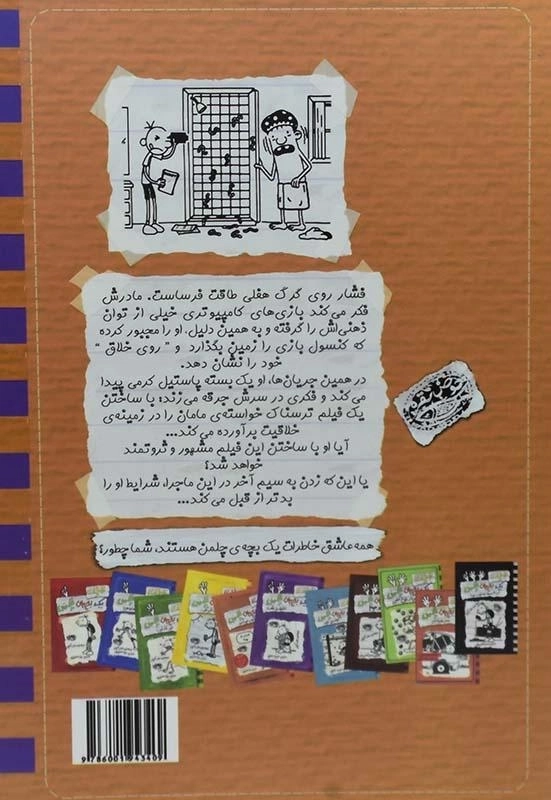 فشار روی گرگ هفلی طاقت فرساست. مادرش
فکر می‌کند بازی‌های کامپیوتری خیلی از توان
ذهنی‌اش را گرفته و به همین دلیل، او را مجبور کرده
که کنسول بازی را زمین بگذارد و "روی خلاق"
خود را نشان دهد.
در همین جریان‌ها، او یک بسته پاستیل کرمی پیدا
می‌کند و فکری در سرش جرقه می‌زند؛ با ساختن
یک فیلم ترسناک خواسته‌ی مامان را در زمینه‌ی
خلاقیت برآورده می‌کند...
آیا او با ساختن این فیلم مشهور و ثروتمند
خواهد شد؟
یا این که زدن به سیم آخر در این ماجرا، شرایط او را
بدتر از قبل می‌کند...
همه عاشق خاطرات یک بچه‌ی چلمن هستند، شما چطور؟
9 786001 943409